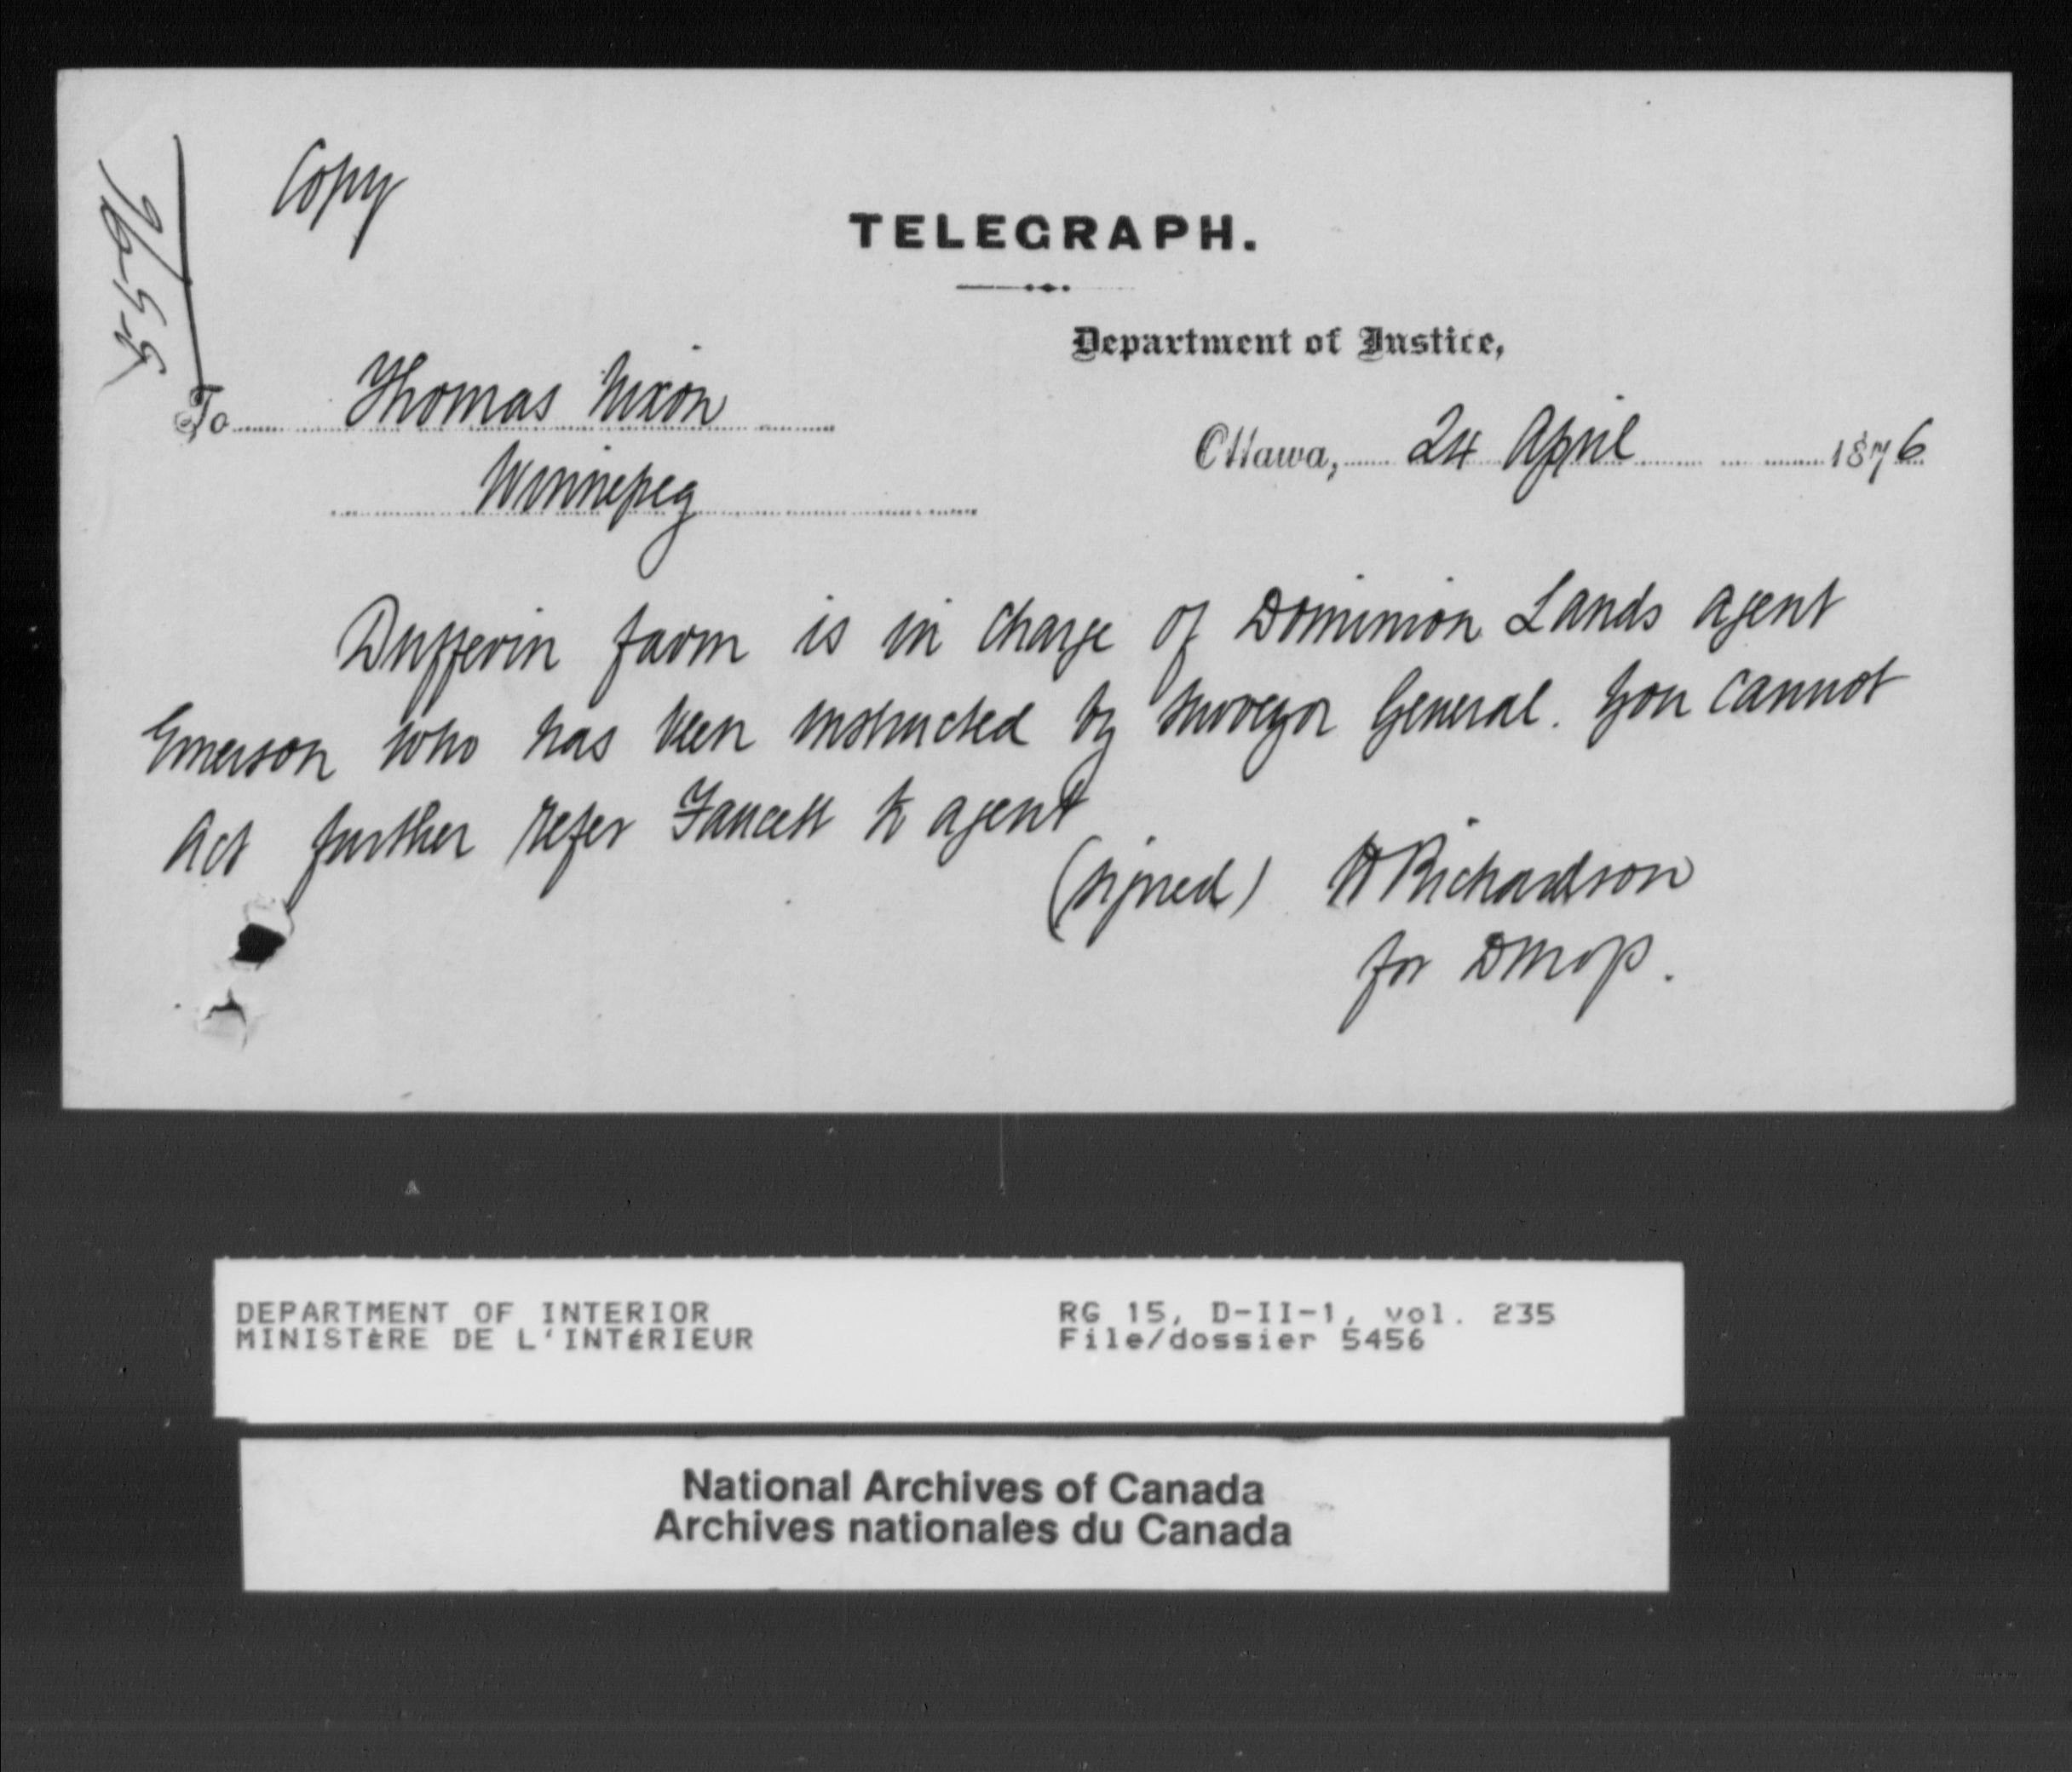 Copy
TELEGRAPH.
Department of Justice,
To Thomas Nixon
Winnepeg
Ottawa, 24 April 1876
Dufferin farm is in charge of Dominion Lands agent
Emerson who has been instructed by Surveyor General. You cannot
Act further refer Fancett to agent
(signed) H Richardson
for DMoJ.
DEPARTMENT OF INTERIOR
MINISTÈRE DE L'INTÉRIEUR
RG 15, D-II-1, vol. 235
File/dossier 5456
National Archives of Canada
Archives nationales du Canada